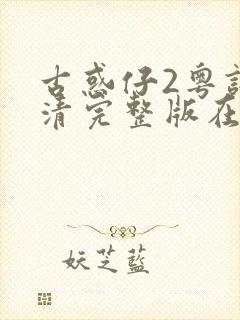 古惑仔2粤
清完整版在
妖芝蓝